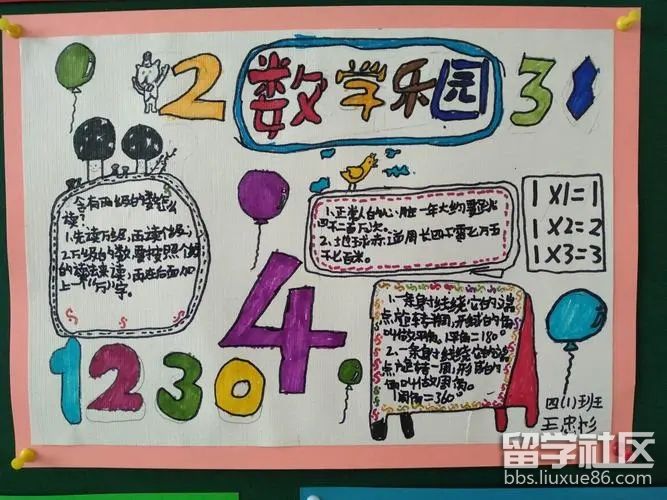 2 数学乐园 3
含有两级的数怎么
读?
1.先读万级,再读个级;
2.万级的数,要按照个级
的读法来读,再在后面加
上一个“万”字。
1.正常人的心脏一年大约要跳
四千二百万次。
2.地球赤道周长四千零七万五
千七百米。
1X1=1
1X2=2
1X3=3
4
1.一条射线绕它的端
点旋转半周,形成的角
叫做平角。1平角=180°
2.一条射线绕它的端
点旋转一周,形成的
角叫做周角。
周角=360°
1230
四(1)班
王忠杉
留学社区
bbs.liuxue86.com